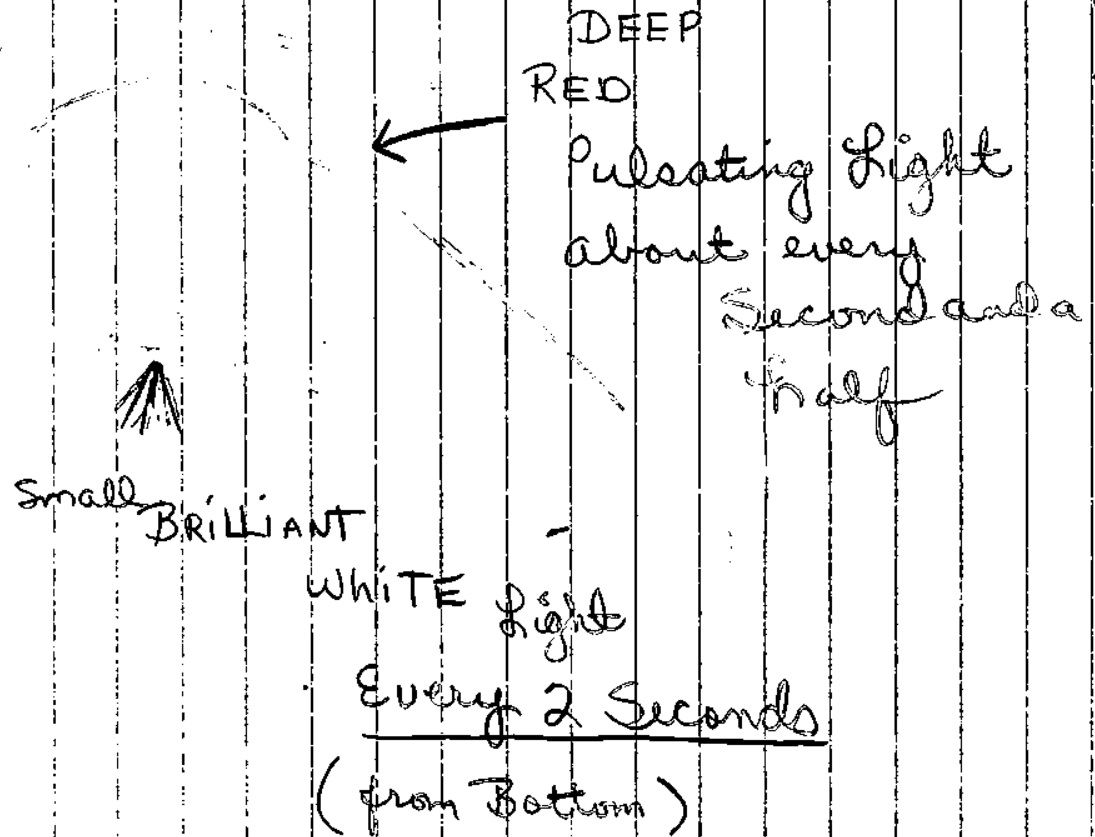 DEEP
RED
Pulsating Light
about every
Second and a
half
Small BRiLLiANT
WHiTE Light
Every 2 Seconds
(from Bottom)